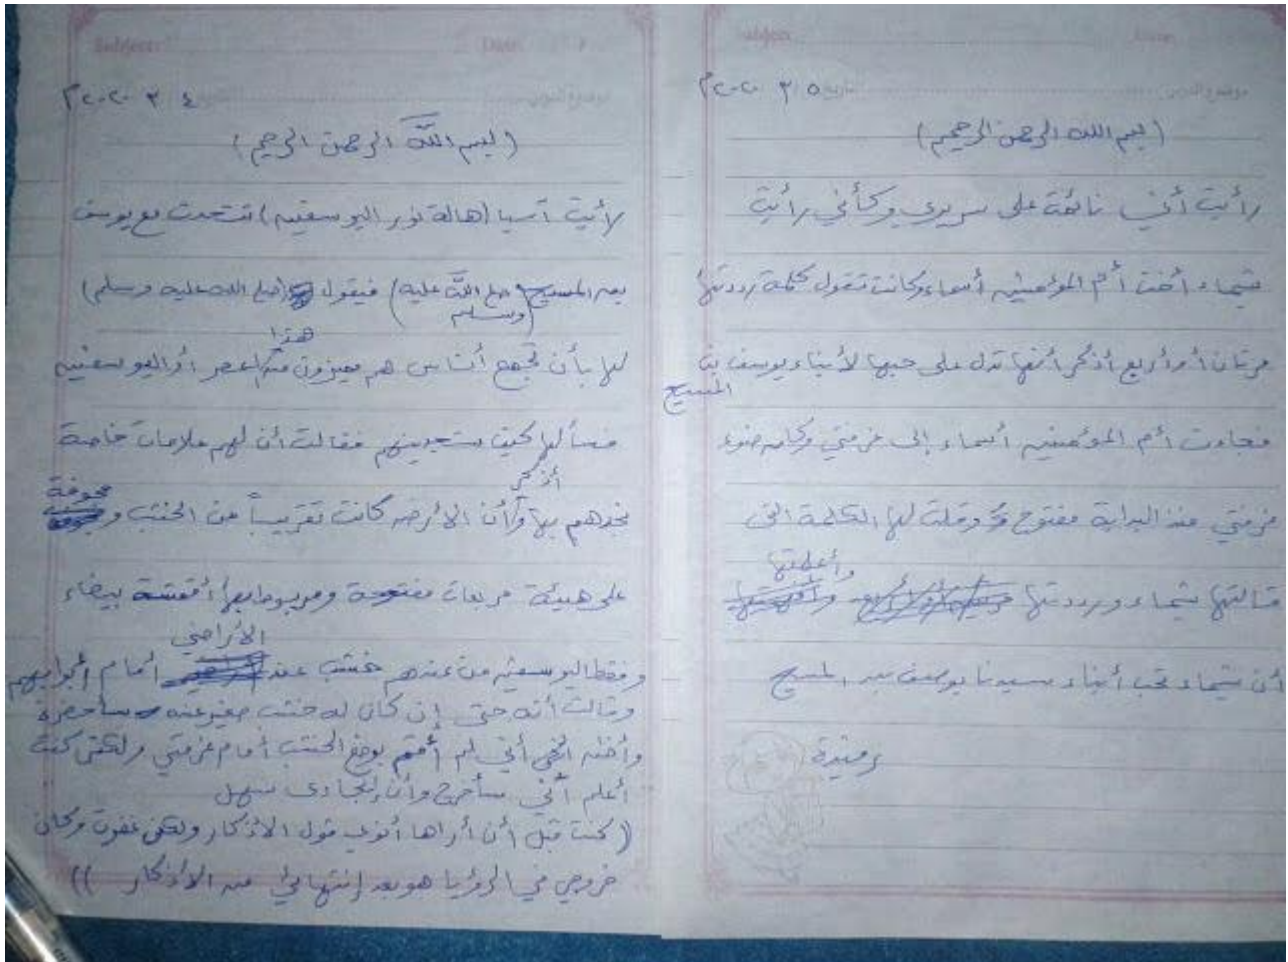 Subject:
٥ ٣ ٢٠٢٠م
(بسم الله الرحمن الرحيم)
رأيت أني نائمة على سريري وكأني رأيت
شيماء أخت أم المؤمنين أسماء وكانت تقول كلمة رددتها
مرتان أو أربع أذكر أنها تدل على حبها لأبناء يوسف بن
المسيح
فجاءت أم المؤمنين أسماء إلى غرفتي وكان ضوء
غرفتي منذ البداية مفتوح وقلت لها الكلمة التي
وأعلمتها
قالتها شيماء ورددتها
أن شيماء تحب أبناء سيدنا يوسف بن المسيح
رفيدة
Subject:
Date:
٤ ٣ ٢٠٢٠م
(بسم الله الرحمن الرحيم)
رأيت آسيا (هالة نور اليوسفيه) تتحدث مع يوسف
بن المسيح (صلى الله عليه وسلم) فيقول (صلى الله عليه وسلم)
هذا
لها بأن تجمع أناس هم مميزون من العصر أو اليوسفيين
فسألها كيف ستجدينهم فقالت أن لهم علامات خاصة
أذكر
نجدهم بها وأن الأرض كانت تقريباً من الخشب و
مجوفة
على هيئة مربعات مفتوحة ومربوط بها أقمشة بيضاء
الأراضي
وفقط اليوسفيين من عندهم خشب عند أمام أبوابهم
وقالت أنه حتى إن كان له خشب صغير عنده سأحضره
وأظن أني لم أقم بوضع الخشب أمام غرفتي ولكني كنت
أعلم أني سأخرج وأن إيجادي سهل
(كنت قبل أن أراها أنوي قول الأذكار ولكن غفوت وكان
خروجي في الرؤيا هو بعد إنتهائي من الأذكار))